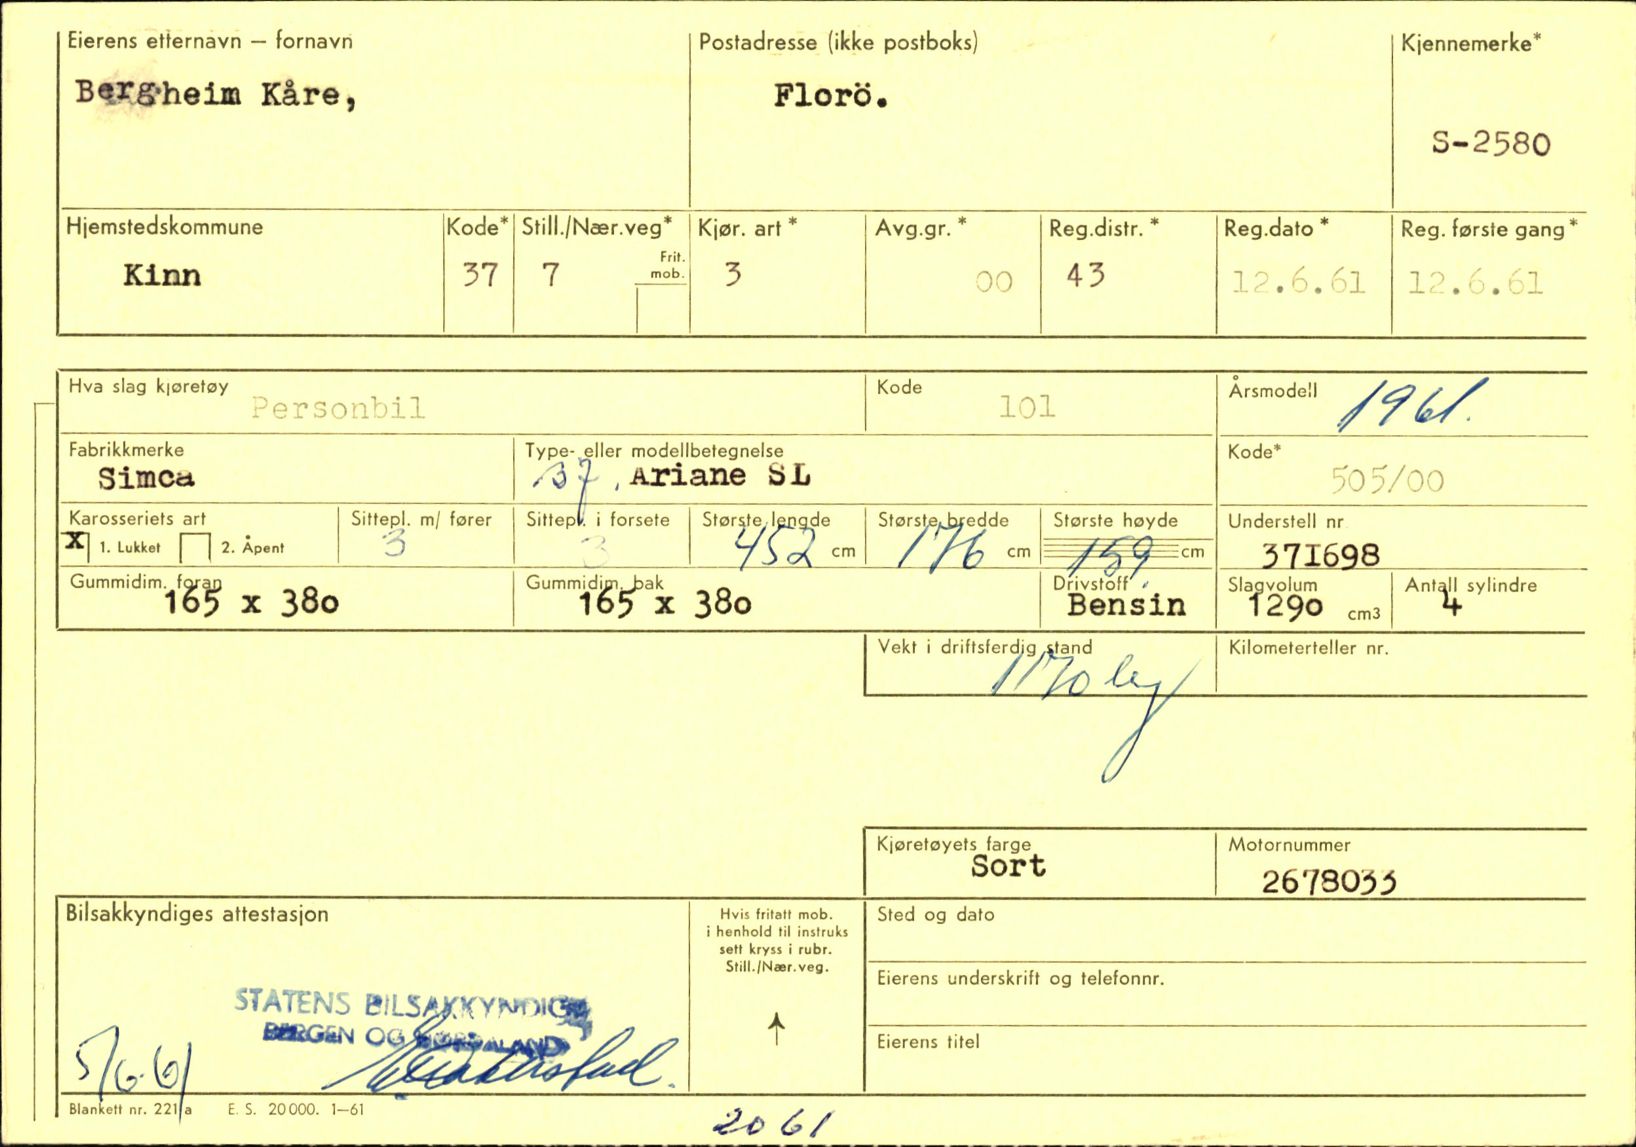 Eierens etternavn — fornavn
Postadresse (ikke postboks)
Kjennemerke*
Bergheim Kåre,
Florö.
S-2580
Hjemstedskommune
Kode*
Still./Nær.veg*
Kjør. art *
Avg.gr. *
Reg.distr. *
Reg.dato *
Reg. første gang *
Frit. mob.
Kinn
37
7
3
00
43
12.6.61
12.6.61
Hva slag kjøretøy
Personbil
Kode
101
Årsmodell
1961.
Fabrikkmerke
Simca
Type- eller modellbetegnelse
37, Ariane SL
Kode*
505/00
Karosseriets art
Sittepl. m/ fører
Sittepl. i forsete
Største lengde
Største bredde
Største høyde
Understell nr
X 1. Lukket
2. Åpent
3
3
452 cm
176 cm
159 cm
37I698
Gummidim. foran
165 x 380
Gummidim. bak
165 x 380
Drivstoff
Bensin
Slagvolum
1290 cm3
Antall sylindre
4
Vekt i driftsferdig stand
1170 kg
Kilometerteller nr.
Kjøretøyets farge
Sort
Motornummer
2678033
Bilsakkyndiges attestasjon
Hvis fritatt mob.
i henhold til instruks
sett kryss i rubr.
Still./Nær.veg.
Sted og dato
Eierens underskrift og telefonnr.
Eierens titel
STATENS BILSAKKYNDIGE
BERGEN OG HORDALAND
5/6-61
Blankett nr. 221 a
E. S. 20 000. 1—61
20 61